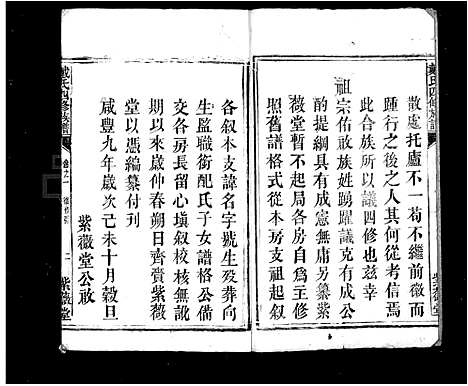 戴氏四修族譜
散處托廬不一苟不繼前徽而
踵行之後之人其何從考信焉
此合族所以議四修也兹幸
祖宗佑啟族姓踴躍議克有成公
酌提綱具有成憲無庸另纂紫
薇堂暫不起局各房自爲主修
照舊譜格式從本房支祖起叙
紫薇堂
各叙本支諱名字號生殁葬向
生監職銜配氏子女譜格公備
交各房長留心填叙校核無訛
期以來歲仲春朔日齊賫紫薇
堂以憑編纂付刊
咸豐九年歲次己未十月穀旦
紫薇堂公啟
戴氏四修族譜
卷之一
二
紫薇堂